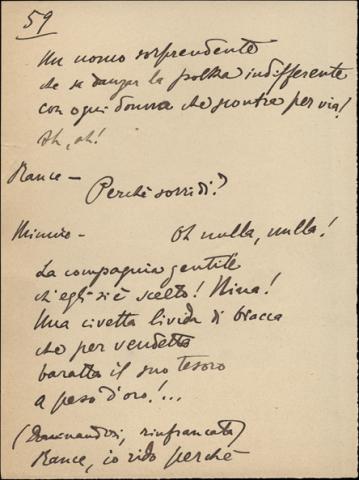 59
Un uomo sorprendente
che sa danzar la polka indifferente
con ogni donna che scontra per via!
Ah, ah!
Rance – Perchè sorridi?
Minnie – Oh nulla, nulla!
La compagnia gentile
ch'egli si è scelto! Nina!
Una civetta livida di biacca
che per vendetta
baratta il suo tesoro
a peso d'oro!...
rinfrancata)
Rance, io rido perchè